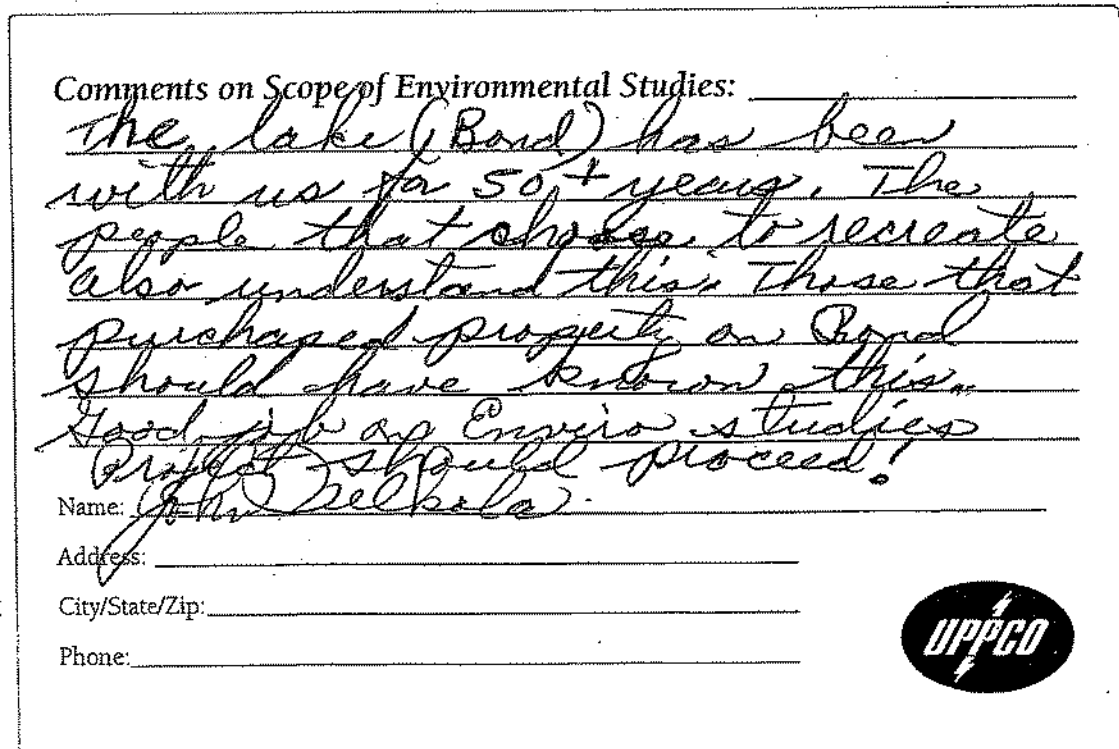 Comments on Scope of Environmental Studies:
The lake (Bond) has been
with us for 50 + years. The
people that choose to recreate
also understand this. Those that
purchased property on Bond
should have known this.
Good job on Enviro studies
Project should proceed!
Name: John
Address:
City/State/Zip:
Phone:
UPPCO